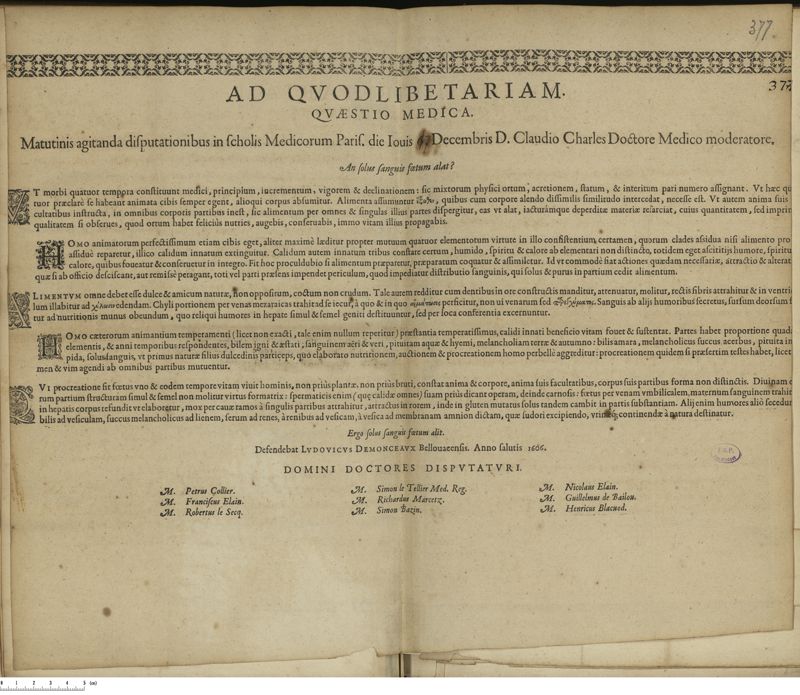 377
377
AD QVODLIBETARIAM.
QVÆSTIO MEDICA.
Matutinis agitanda disputationibus in scholis Medicorum Paris. die Iouis Decembris D. Claudio Charles Doctore Medico moderatore.
An solus sanguis fœtum alat?
VT morbi quatuor tempora constituunt medici, principium, incrementum, vigorem & declinationem: sic mixtorum physici ortum, accretionem, statum, & interitum pari numero assignant. Vt hæc
tuor præclarè se habeant animata cibis semper egent, alioqui corpus absumitur. Alimenta assumuntur quibus cum corpore alendo dissimilis similitudo intercedat, necesse est. Vt autem anima suis
cultatibus instructa, in omnibus corporis partibus inest, sic alimentum per omnes & singulas illius partes dispergitur, eas vt alat, iacturámque deperditæ materiæ resarciat, cuius quantitatem, sed
qualitatem si obserues, quod ortum habet feliciùs nutries, augebis, conseruabis, immo vitam illius propagabis.
HOMO animatorum perfectissimum etiam cibis eget, aliter maximè læditur propter mutuum quatuor elementotum virtute in illo consistentium certamen, quorum clades assidua nisi alimento pro
assiduè reparetur, illico calidum innatum extinguitur. Calidum autem innatum tribus constare certum, humido, spiritu & calore ab elementari non distincto, totidem eget ascititijs humore, spiritu
calore, quibus foueatur & conseruetur in integro. Fit hoc proculdubio si alimentum præparetur, præparatum coquatur & assimiletur. Id vt commodè fiat actiones quædam necessariæ, attractio & alterat
quæ si ab officio desciscant, aut remissè peragant, toti vel parti præsens impendet periculum, quod impediatur distributio sanguinis, qui solus & purus in partium cedit alimentum.
ALIMENTVM omne debet esse dulce & amicum naturæ, non oppositum, coctum non crudum. Tale autem redditur cum dentibus in ore constructis manditur, attenuatur, molitur, rectis fibris attrahitur & in ventri
lum illabitur ad edendam. Chyli portionem per venas mezaraicas trahit ad se iecur, à quo & in quo perficitur, non ui venarum sed Sanguis ab alijs humoribus secretus, sursum deorsum
tur ad nutritionis munus obeundum, quo reliqui humores in hepate simul & semel geniti destituuntur, sed per loca conferentia excernuntur.
HOMO cæterorum animantium temperamenti (licet non exacti, tale enim nullum reperitur) præstantia temperatissimus, calidi innati beneficio vitam fouet & sustentat. Partes habet proportione quad
elementis, & anni temporibus respondentes, bilem igni & æstati, sanguinem aëri & veri, pituitam aquæ & hyemi, melancholiam terræ & autumno: bilis amara, melancholicus succus acerbus, pituita in
pida, solus sanguis, vt primus naturæ filius dulcedinis particeps, quo elaborato nutritionem, auctionem & procreationem homo perbellè aggreditur: procreationem quidem si præsertim testes habet, licet
men & vim agendi ab omnibus partibus mutuentur.
VT procreatione sit fœtus vno & eodem tempore vitam viuit hominis, non priùs plantæ, non priùs bruti, constat anima & corpore, anima suis facultatibus, corpus suis partibus forma non distinctis. Diuinam
rum partium structuram simul & semel non molitur virtus formatrix: spermaticis enim (quę calidæ omnes) suam priùs dicant operam, deinde carnosis: fœtus per venam vmbilicalem, maternum sanguinem trahit
in hepatis corpus refundit vt elaboretur, mox per cauæ ramos à singulis partibus attrahitur, attractus in rorem, inde in gluten mutatus solus tandem cambit in partis substantiam. Alij enim humores aliò secedunt
bilis ad vesiculam, succus melancholicus ad lienem, serum ad renes, à renibus ad vesicam, à vesica ad membranam amnion dictam, quæ sudori excipiendo, continendæ à natura destinatur.
Ergo solus sanguis fœtum alit.
Defendebat LVDOVICVS DEMONCEAVX Bellouacensis. Anno salutis 1606.
DOMINI DOCTORES DISPVTATVRI.
M. Petrus Collier.
M. Franciscus Elain.
M. Robertus le Secq.
M. Simon le Tellier Med. Reg.
M. Richardus Marcetz.
M. Simon Bazin.
M. Nicolaus Elain.
M. Guillelmus de Bailou.
M. Henricus Blacuod.
0 1 2 3 4 5 (cm)